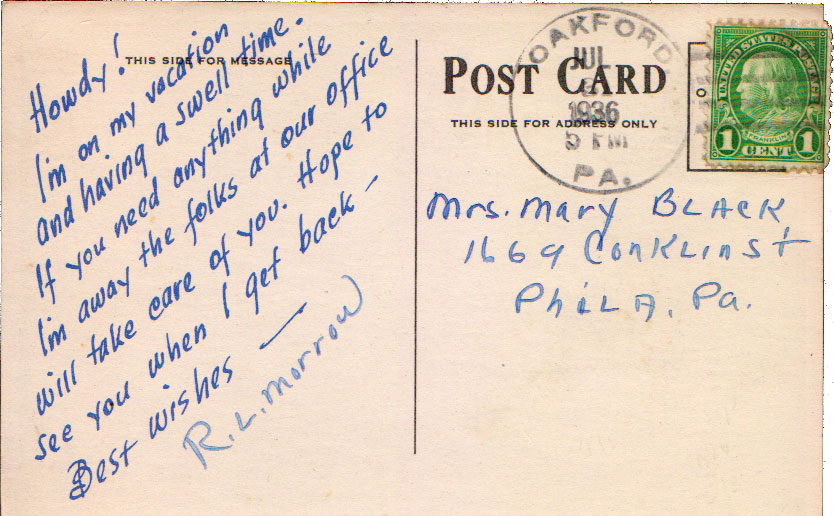 THIS SIDE FOR MESSAGE
Howdy!
I'm on my vacation
and having a swell time.
If you need anything while
I'm away the folks at our office
will take care of you. Hope to
see you when I get back —
Best wishes —
R. L. Morrow
POST CARD
THIS SIDE FOR ADDRESS ONLY
OAKFORD
JUL
1936
5 PM
PA.
UNITED STATES POSTAGE
FRANKLIN
1 CENT 1
Mrs. Mary BLACK
1669 Conklin St
PhiLA, Pa.